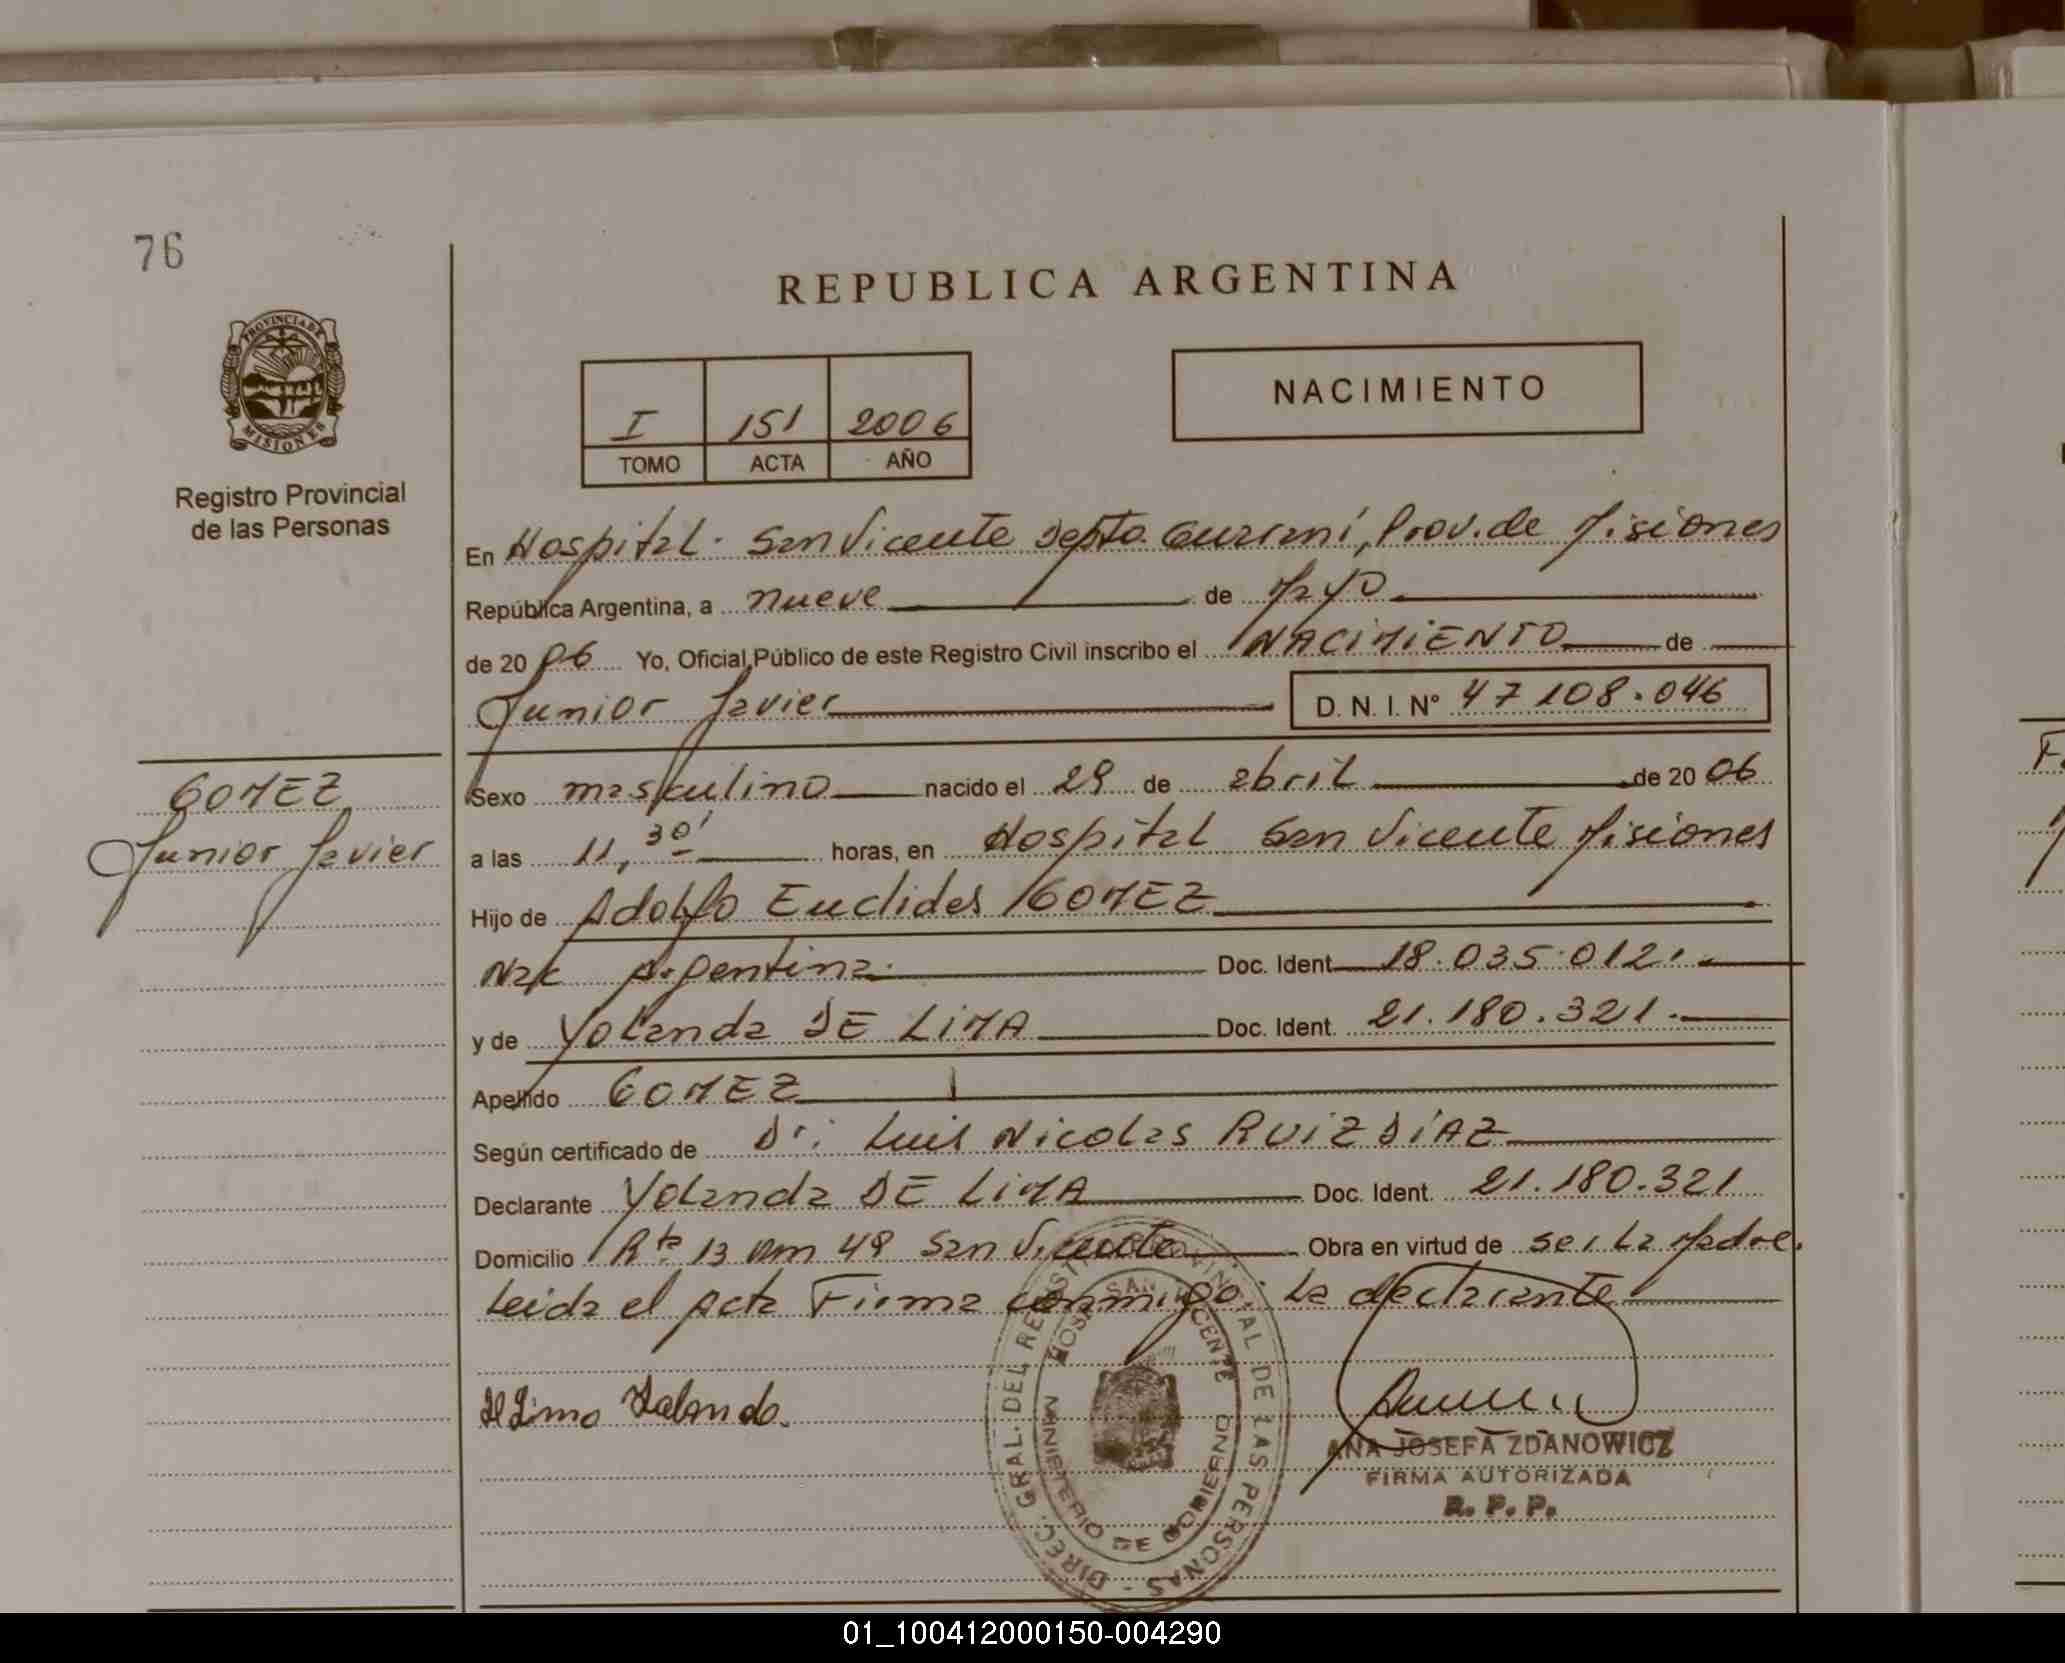 76
REPUBLICA ARGENTINA
PROVINCIA DE
MISIONES
Registro Provincial
de las Personas
I 151 2006
TOMO ACTA AÑO
NACIMIENTO
En Hospital. San Vicente Depto. Guaraní, Prov. de Misiones
República Argentina, a nueve de Mayo
de 20 06 Yo, Oficial Público de este Registro Civil inscribo el NACIMIENTO de
Junior Javier D. N. I. N° 47 108.046
GOMEZ
Junior Javier
Sexo masculino nacido el 29 de abril de 20 06
a las 11,30' horas, en Hospital San Vicente Misiones
Hijo de Adolfo Euclides GOMEZ
Nac Argentina. Doc. Ident. 18.035.012.
y de Yolanda DE LIMA Doc. Ident. 21.180.321.
Apellido GOMEZ
Según certificado de Dr: Luis Nicolas RUIZ DÍAZ
Declarante Yolanda DE LIMA Doc. Ident. 21.180.321
Domicilio Rta 13 Km 49 San Vicente Obra en virtud de ser La Madre.
Leida el Acta Firma conmigo: La declarante
De Lima Yolanda.
DIREC. GRAL. DEL REGISTRO PROVINCIAL DE LAS PERSONAS -
HOSP. SAN VICENTE
MINISTERIO DE GOBIERNO
ANA JOSEFA ZDANOWICZ
FIRMA AUTORIZADA
R. P. P.
01_100412000150-004290